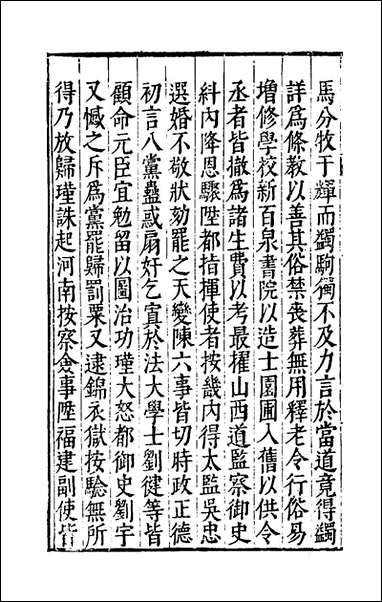 馬分牧于輝而蠲駒獨不及力言於當道竟得蠲
詳爲條教以善其俗禁喪葬無用釋老令行俗易
增修學校新百泉書院以造士園圃入舊以供令
丞者皆撤爲諸生費以考最擢山西道監察御史
糾内降恩驟陞都指揮使者按畿内得太監吳忠
選婚不敬狀劾罷之天變陳六事皆切時政正德
初言八黨蠱惑扇奸乞寘於法大學士劉健等皆
顧命元臣宜勉留以圖治功瑾大怒都御史劉宇
又憾之斥爲黨罷歸罰粟又逮錦衣獄按驗無所
得乃放歸瑾誅起河南按察僉事陞福建副使皆